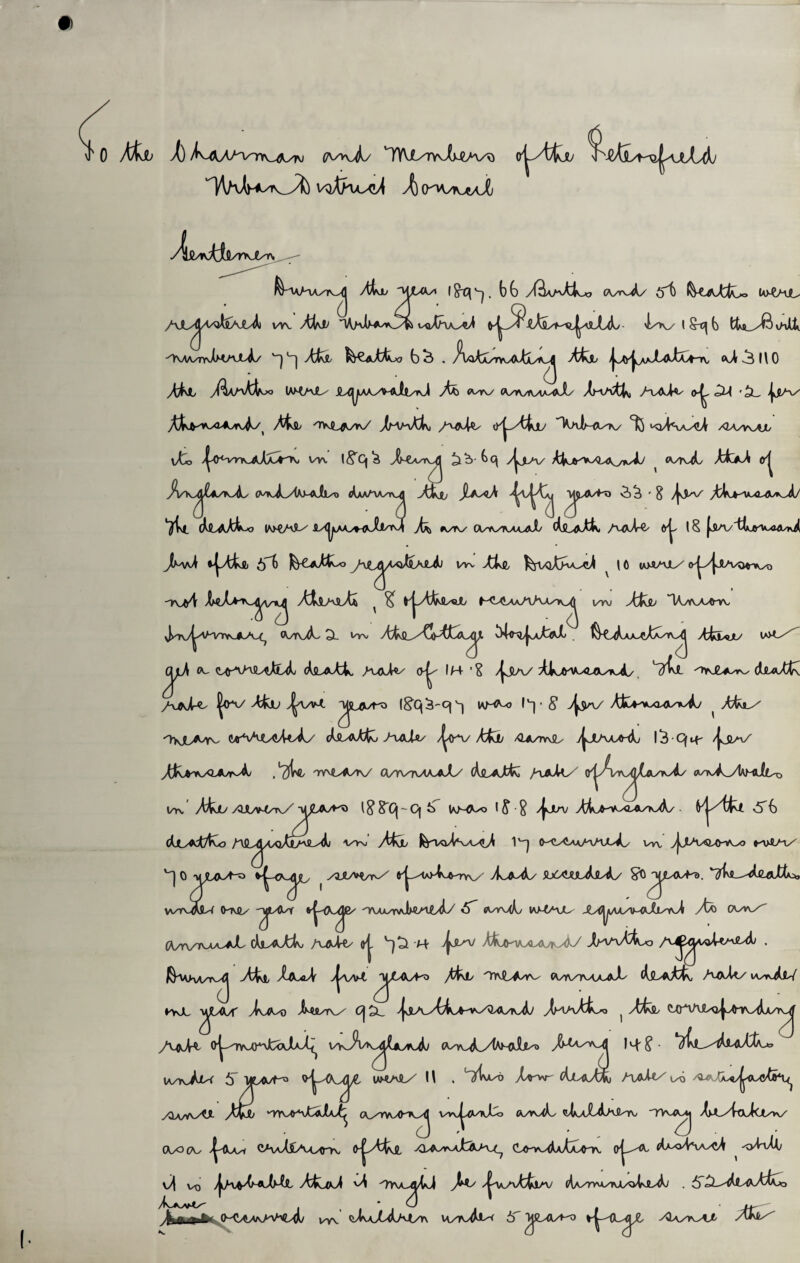 To the Chairman and Members of the Petersfield
Urban District Council
Gentlemen
During the year 1897. 66 Births and 56 Deaths were
registered in the Urban District of Petersfield. In 1896 the Births
numbered 77 the Deaths 63. Estimating the population at 3110
the Births were equivalent to an annual birth rate of 21.2 per
thousand, the mean birth rate of the Urban District since
its formation in 1893 being 23.69 per thousand, and that of
England and Wales during the last fifty years 33.8 per thousand
The deaths were equivalent to an annual death rate of 18 per thousand
but of the 56 Deaths registered in the District, 10 were of persons
not belonging thereto, 8 of these occurring in the Union
Infirmary, and 2 in the Cottage Hospital. Deducting these we
get a corrected death rate of 14.8 per thousand. The mean death
rate for the five years 1893-97 was 17.8 per thousand, the
mean corrected death rate for the same period 13.94 per
thousand. The mean annual death rate of England and Wales
in the seven years 1889-95 was 18.8 per thousand. Of the 56
deaths registered in the District 17 occurred in persons over
70 years of age, seven of whom had exceeded 80 years. The deaths
under one year of age numbered 5 and were equivalent to an
annual death rate of 72.4 per thousand births registered.
During the last five years the mean annual death rate under
one year has been 92 per thousand births, the corresponding
rate of mortality in England and Wales being 148. The deaths
under 5 years of age were 11. This low death rate is satisfactory
since the mortality among infants and children may be taken
as a fair criterion of the sanitary condition of a district, still
it is probable that it might be further diminished. 52 deaths
have occurred in children under 5 years of age since the
1.